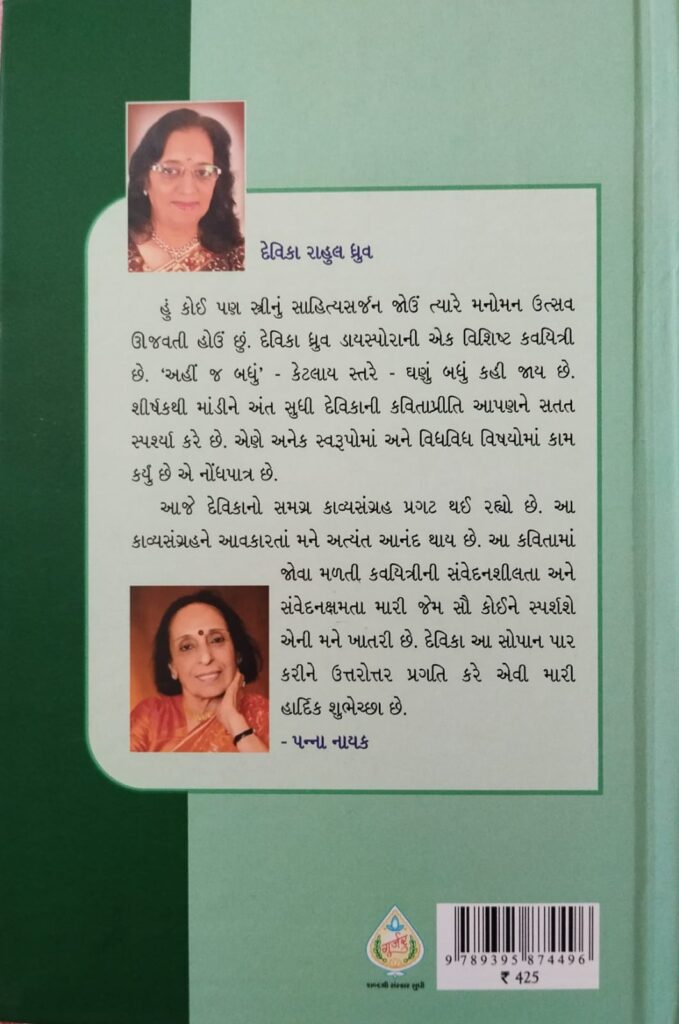 દેવિકા રાહુલ ધ્રુવ
હું કોઈ પણ સ્ત્રીનું સાહિત્યસર્જન જોઉં ત્યારે મનોમન ઉત્સવ
ઊજવતી હોઉં છું. દેવિકા ધ્રુવ ડાયસ્પોરાની એક વિશિષ્ટ કવયિત્રી
છે. ‘અહીં જ બધું’ - કેટલાય સ્તરે - ઘણું બધું કહી જાય છે.
શીર્ષકથી માંડીને અંત સુધી દેવિકાની કવિતાપ્રીતિ આપણને સતત
સ્પર્શ્યા કરે છે. એણે અનેક સ્વરૂપોમાં અને વિધવિધ વિષયોમાં કામ
કર્યું છે એ નોંધપાત્ર છે.
આજે દેવિકાનો સમગ્ર કાવ્યસંગ્રહ પ્રગટ થઈ રહ્યો છે. આ
કાવ્યસંગ્રહને આવકારતાં મને અત્યંત આનંદ થાય છે. આ કવિતામાં
જોવા મળતી કવયિત્રીની સંવેદનશીલતા અને
સંવેદનક્ષમતા મારી જેમ સૌ કોઈને સ્પર્શશે
એની મને ખાતરી છે. દેવિકા આ સોપાન પાર
કરીને ઉત્તરોત્તર પ્રગતિ કરે એવી મારી
હાર્દિક શુભેચ્છા છે.
- પન્ના નાયક
गूर्जर
શબ્દથી સંસ્કાર સુધી
9 789395 874496
₹ 425